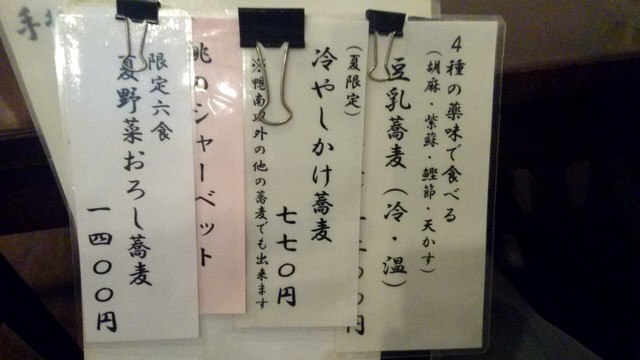 4種の薬味で食べる
(胡麻・紫蘇・鰹節・天かす)
豆乳蕎麦(冷・温)
円
(夏限定)
冷やしかけ蕎麦
七七〇円
※鴨南以外の他の蕎麦でも出来ます
桃のシャーベット
限定六食
夏野菜おろし蕎麦
一四〇〇円
手